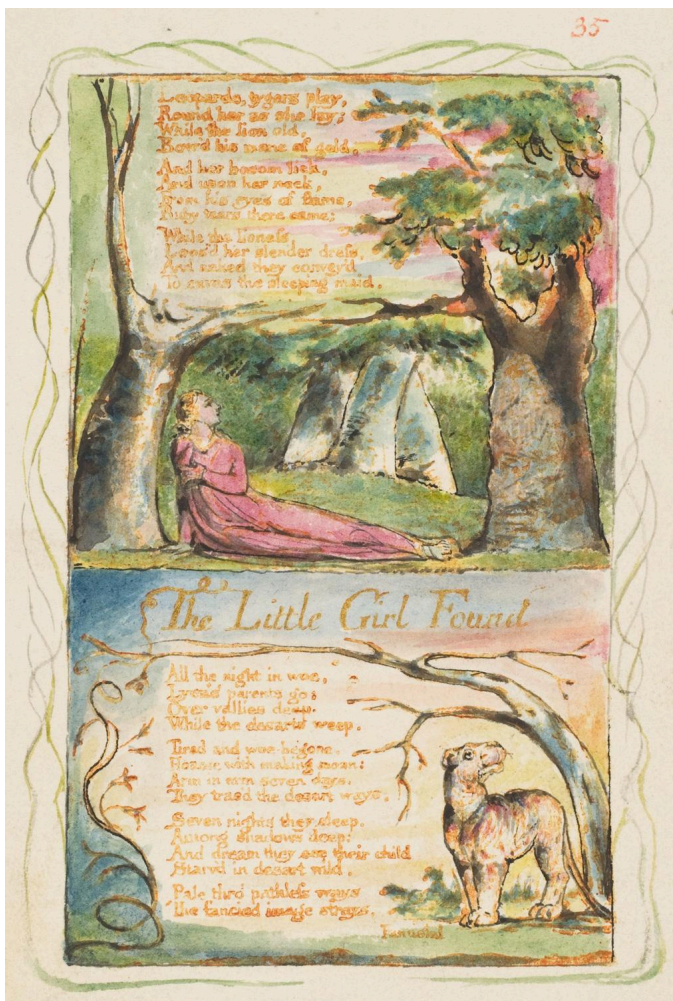 35
Leopards, tygers play,
Round her as she lay;
While the lion old,
Bow'd his mane of gold,
And her bosom lick,
And upon her neck,
From his eyes of flame,
Ruby tears there came;
While the lioness
Loos'd her slender dress,
And naked they convey'd
To caves the sleeping maid.
The Little Girl Found
All the night in woe,
Lyca's parents go:
Over vallies deep.
While the desarts weep.
Tired and woe-begone.
Hoarse with making moan:
Arm in arm seven days.
They trac'd the desart ways.
Seven nights they sleep.
Among shadows deep:
And dream they see their child
Starv'd in desart wild.
Pale thro' pathless ways
The fancied image strays.